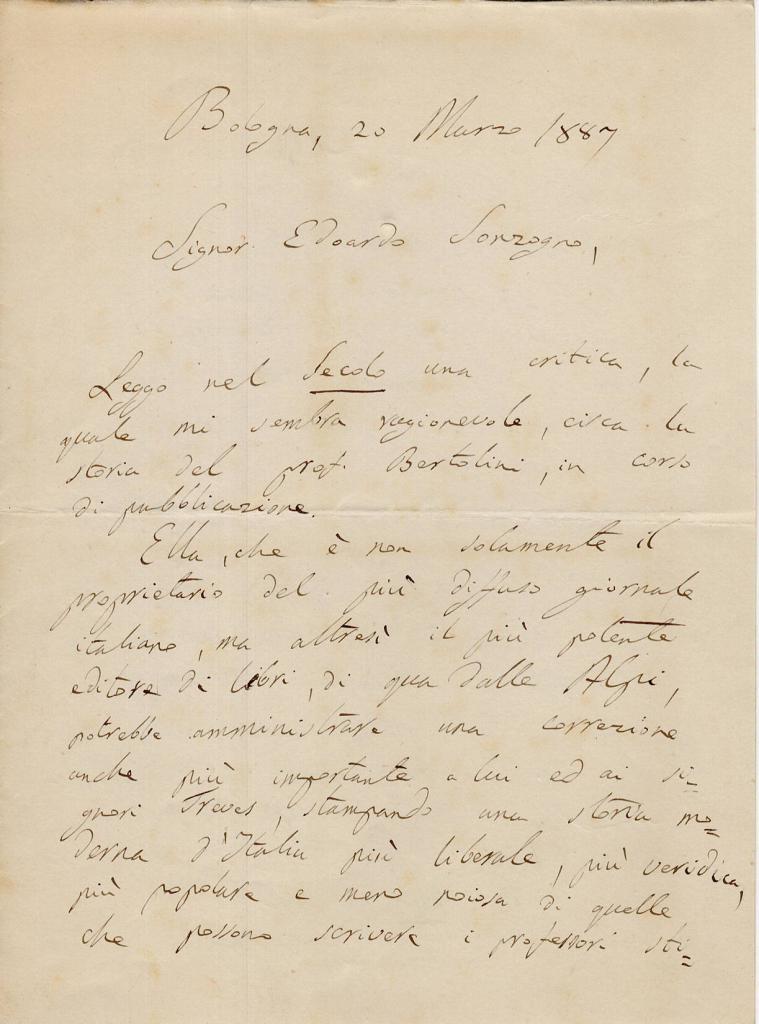 Bologna, 20 Marzo 1887
Signor Edoardo Sonzogno,
Leggo nel Secolo una critica, la
quale mi sembra ragionevole, circa la
storia del prof. Bertolini, in corso
di pubblicazione.
Ella, che è non solamente il
proprietario del più diffuso giornale
italiano, ma altresì il più potente
editore di libri, di qua dalle Alpi,
potrebbe amministrare una correzione
anche più importante a lui ed ai si=
gnori Treves, stampando una storia mo=
derna d'Italia più liberale, più veridica,
più popolare e meno noiosa di quelle
che possono scrivere i professori sti=